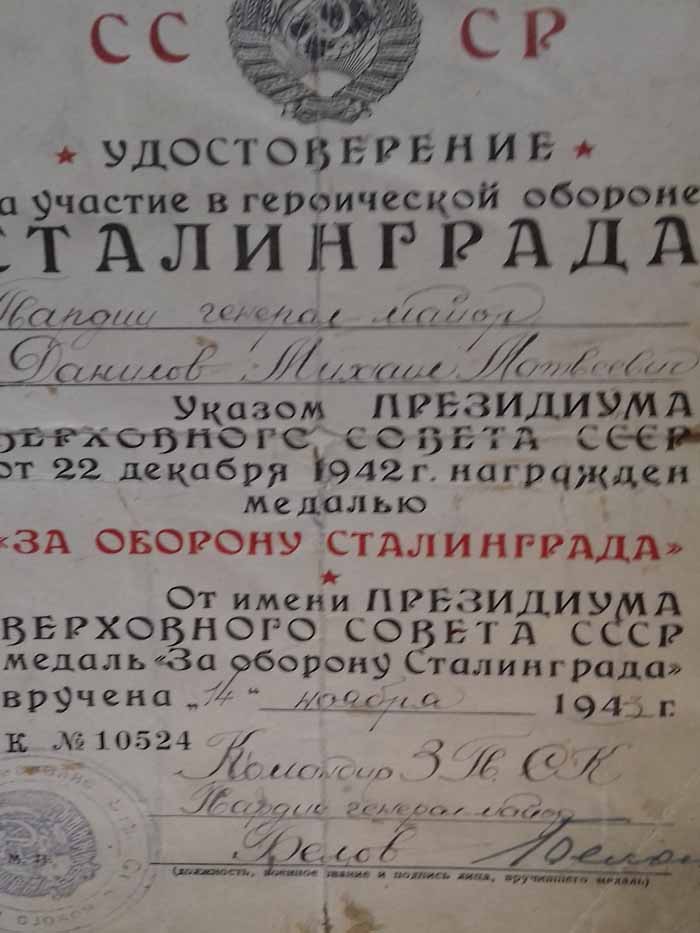 СС СР
УДОСТОВЕРЕНИЕ
а участие в героической обороне
СТАЛИНГРАДА
Гвардии генерал майор
Данилов Михаил Матвеевич
Указом ПРЕЗИДИУМА
ВЕРХОВНОГО СОВЕТА СССР
от 22 декабря 1942 г. награжден
медалью
«ЗА ОБОРОНУ СТАЛИНГРАДА»
От имени ПРЕЗИДИУМА
ВЕРХОВНОГО СОВЕТА СССР
медаль «За оборону Сталинграда»
вручена „14“ ноября 1943 г.
К № 10524
Командир 3 Гв. СК
Гвардии генерал майор
М. П.
(должность, военное звание и подпись лица, вручившего медаль)